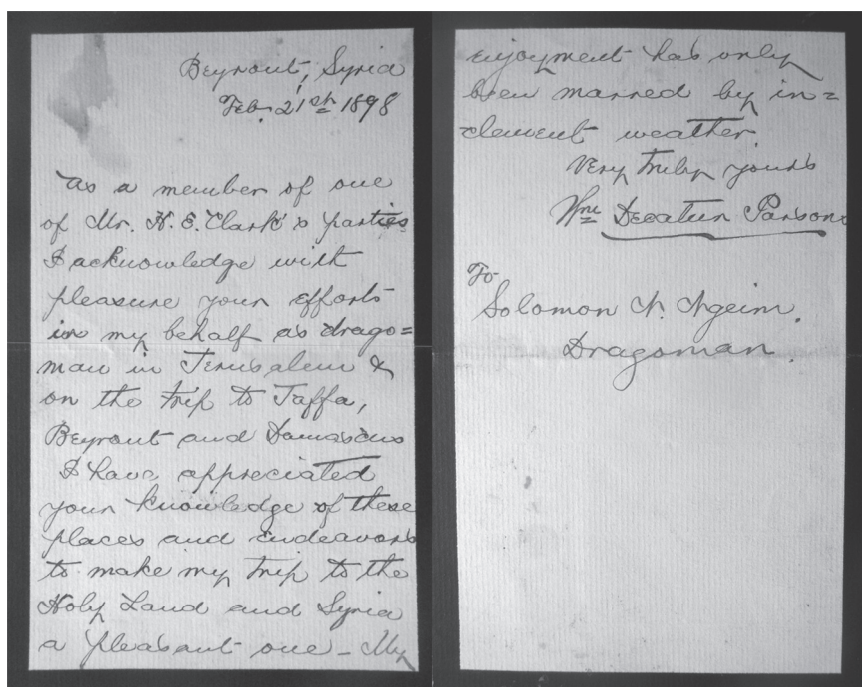 Beyrout, Syria
Feb. 21st 1898
As a member of one
of Mr. H. E. Clark's parties
I acknowledge with
pleasure your efforts
in my behalf as drago=
man in Jerusalem &
on the trip to Jaffa,
Beyrout and Damascus
I have appreciated
your knowledge of these
places and endeavors
to make my trip to the
Holy Land and Syria
a pleasant one - My
enjoyment has only
been marred by in=
clement weather.
Very truly yours
Wm Decatur Parsons
To
Solomon N. Ngeim.
Dragoman.